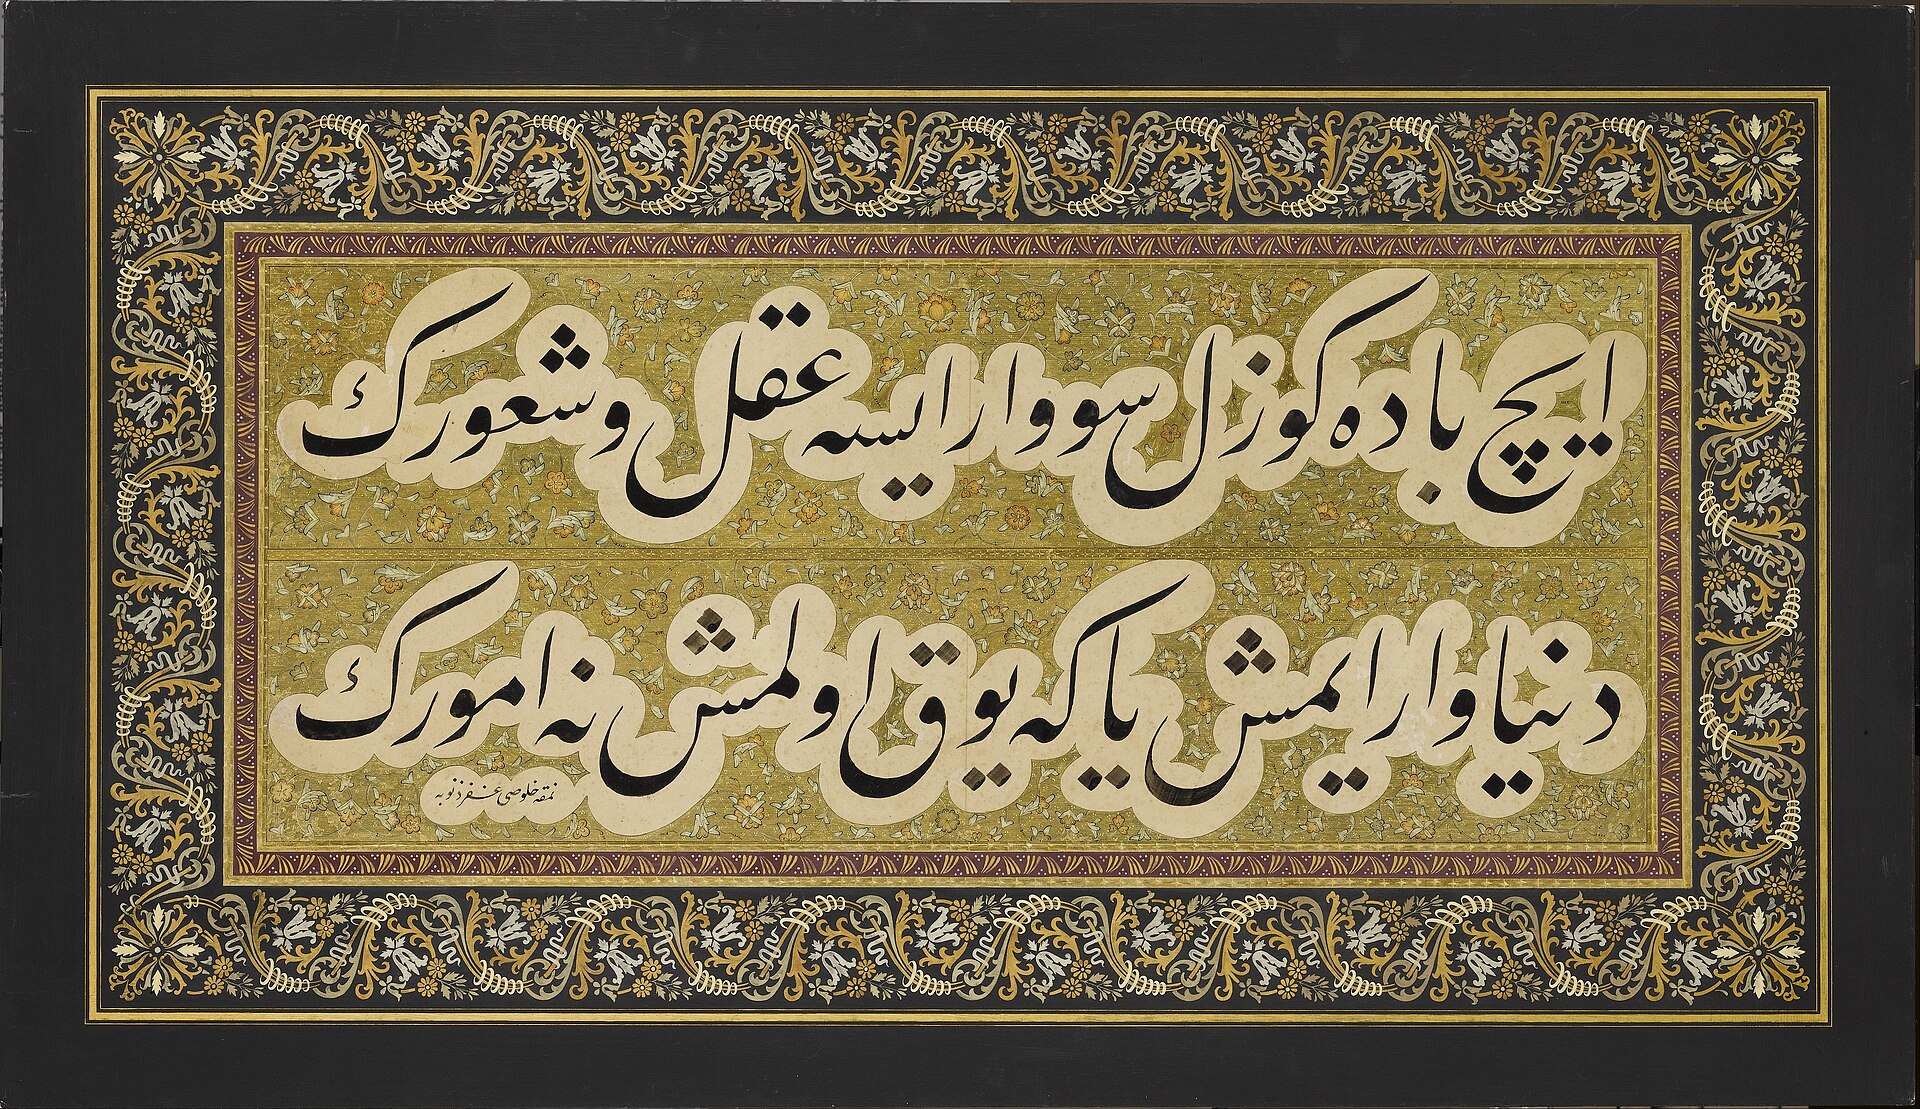 ایچ باده کوزل سو وار ایسه عقل و شعورڭ
دنیا وار ایمش یا که یوق اولمش نه امورڭ
نمقه خلوصی غفر ذنوبه